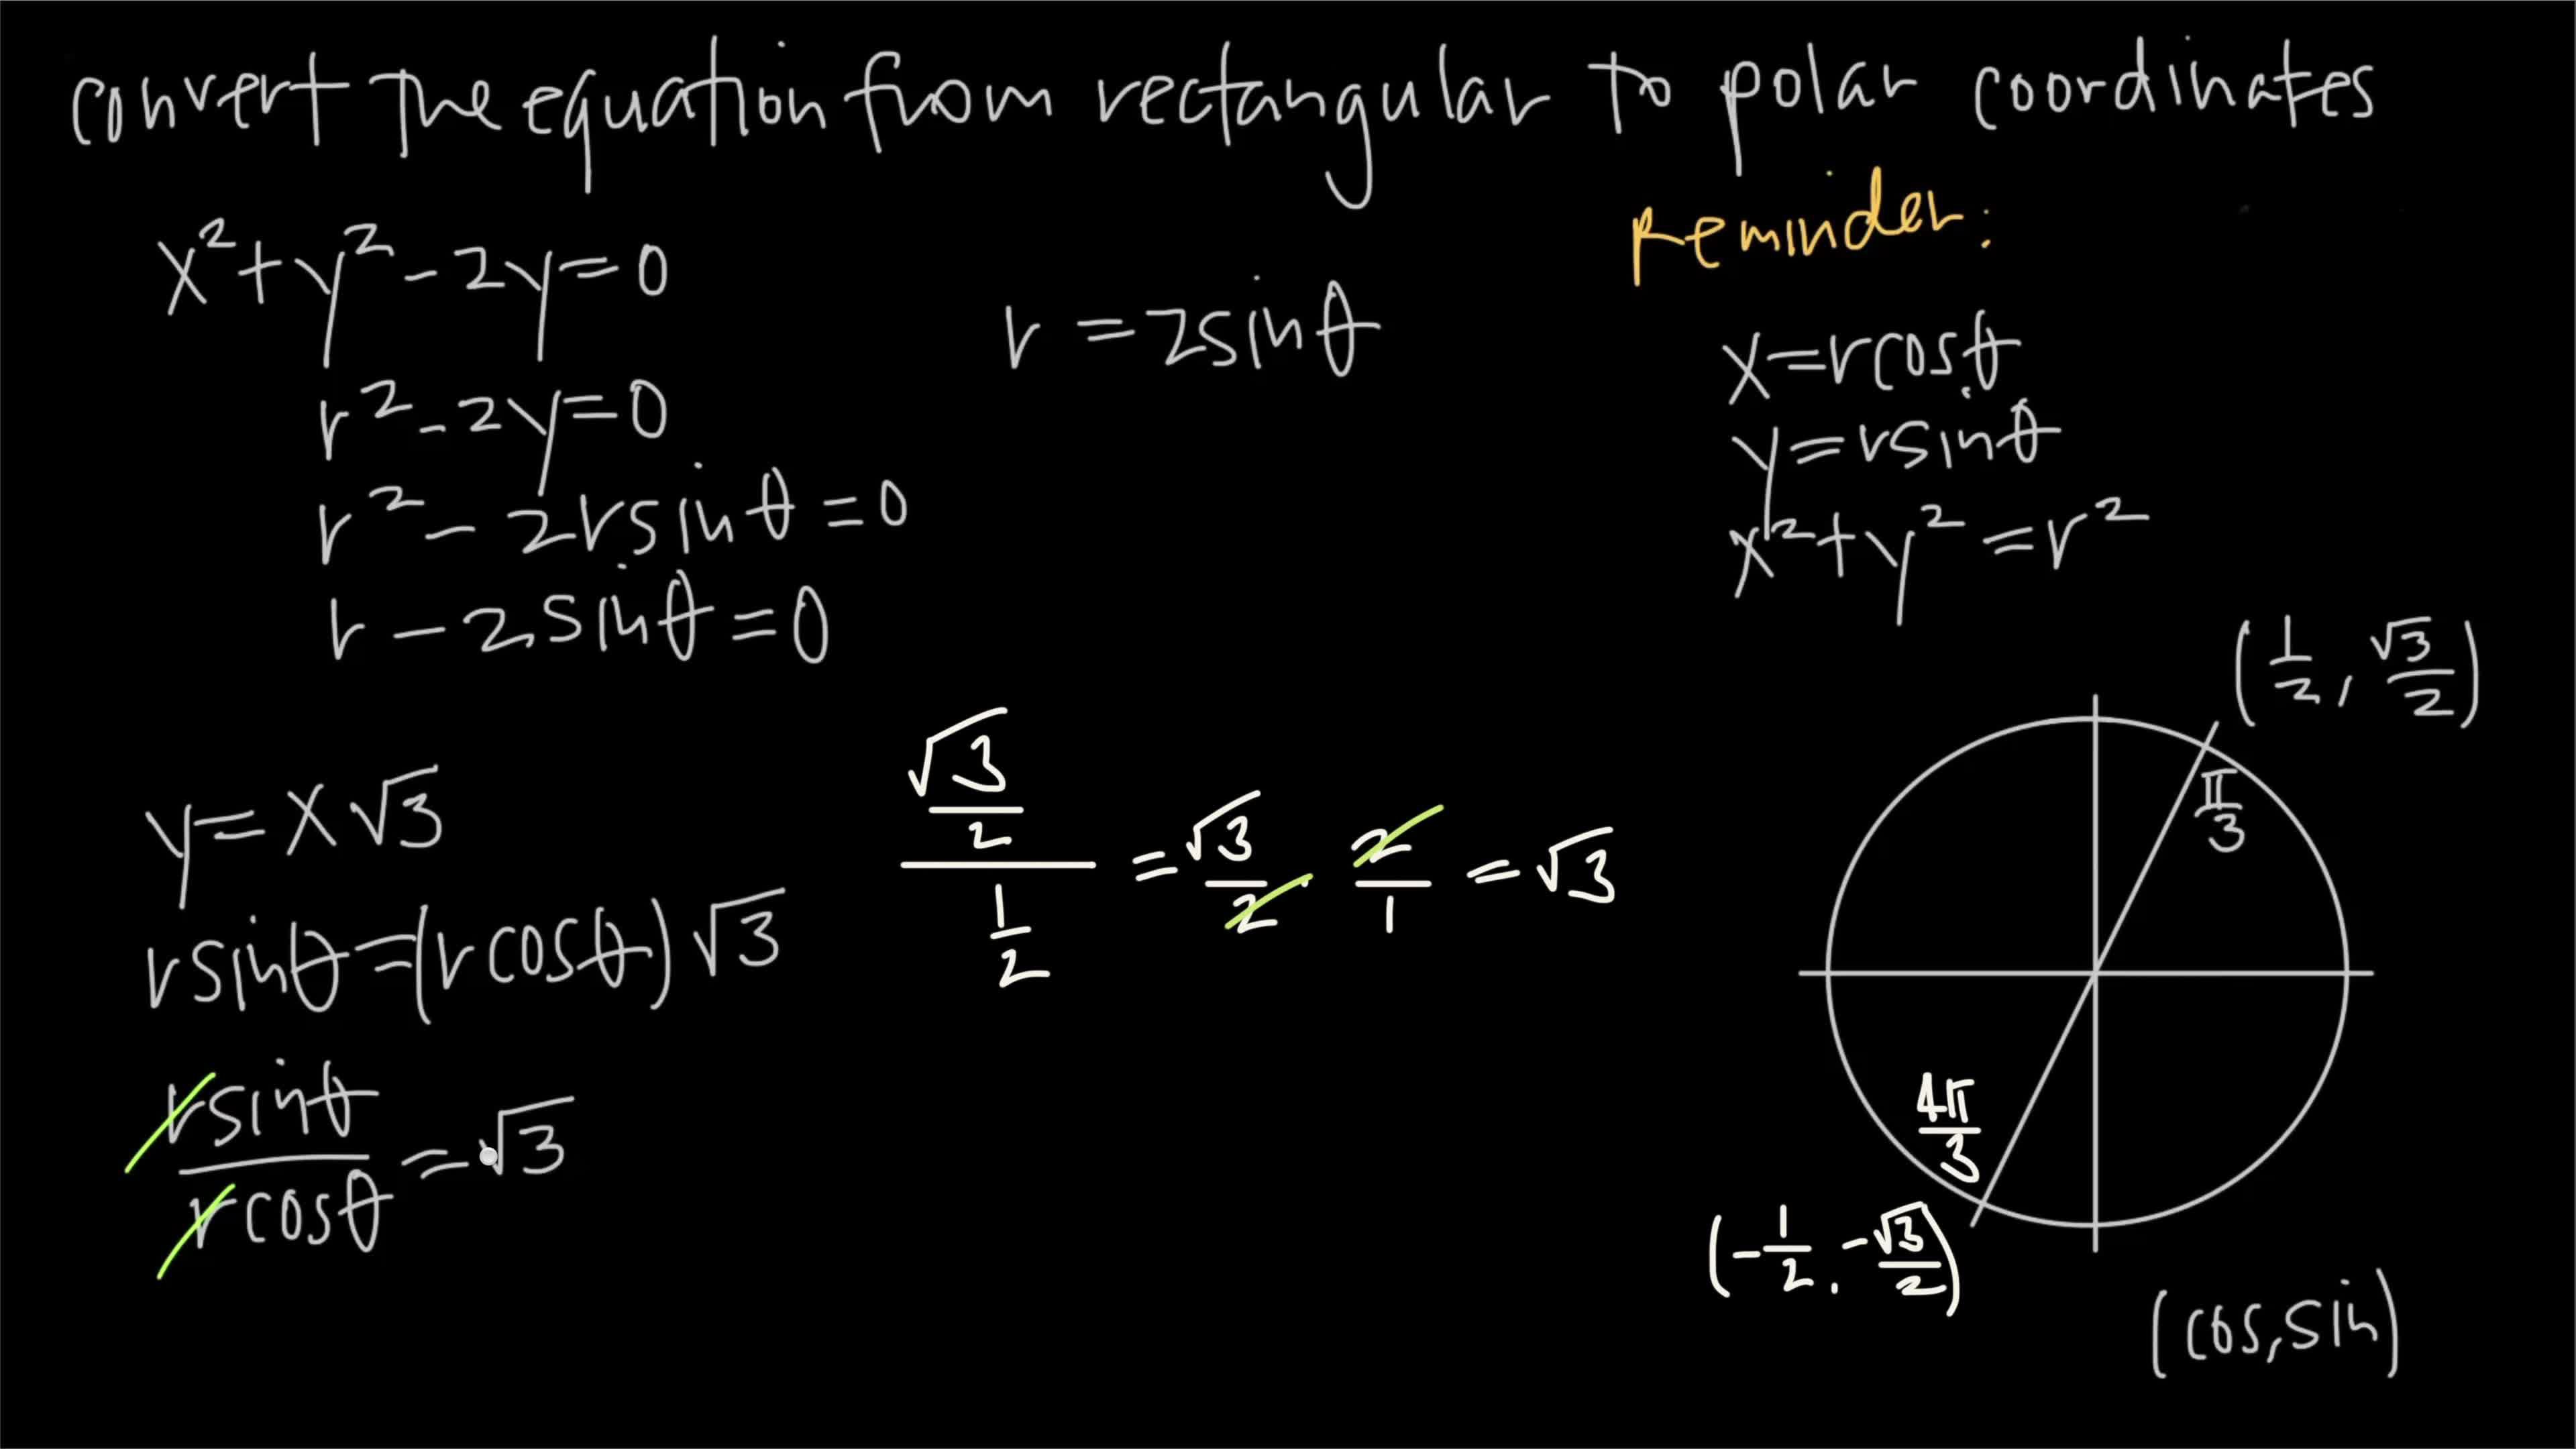 convert the equation from rectangular to polar coordinates
x²+y²-2y=0
r²-2y=0
r²-2rsinθ=0
r-2sinθ=0
r=2sinθ
Reminder:
x=rcosθ
y=rsinθ
x²+y²=r²
y=x√3
rsinθ=(rcosθ)√3
rsinθ/rcosθ=√3
(√3/2)/(1/2)=√3/2·2/1=√3
(1/2,√3/2)
π/3
4π/3
(-1/2,-√3/2)
(cos,sin)